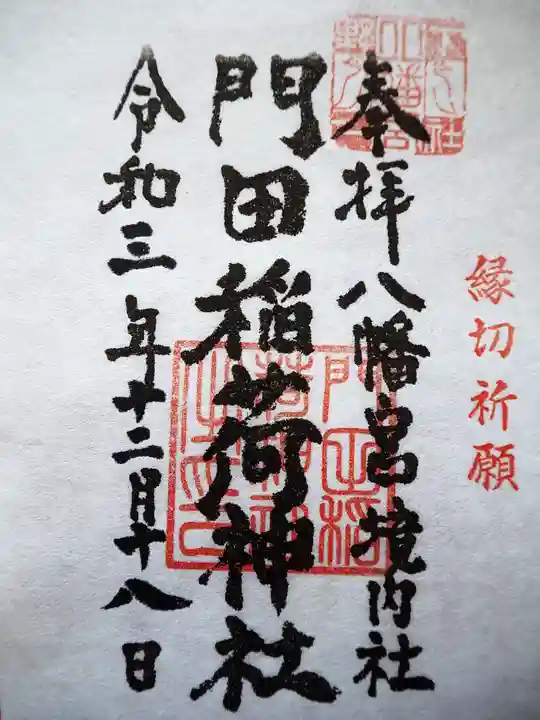 縁切祈願
奉拝八幡宮境内社
門田稲荷神社
令和三年十二月十八日